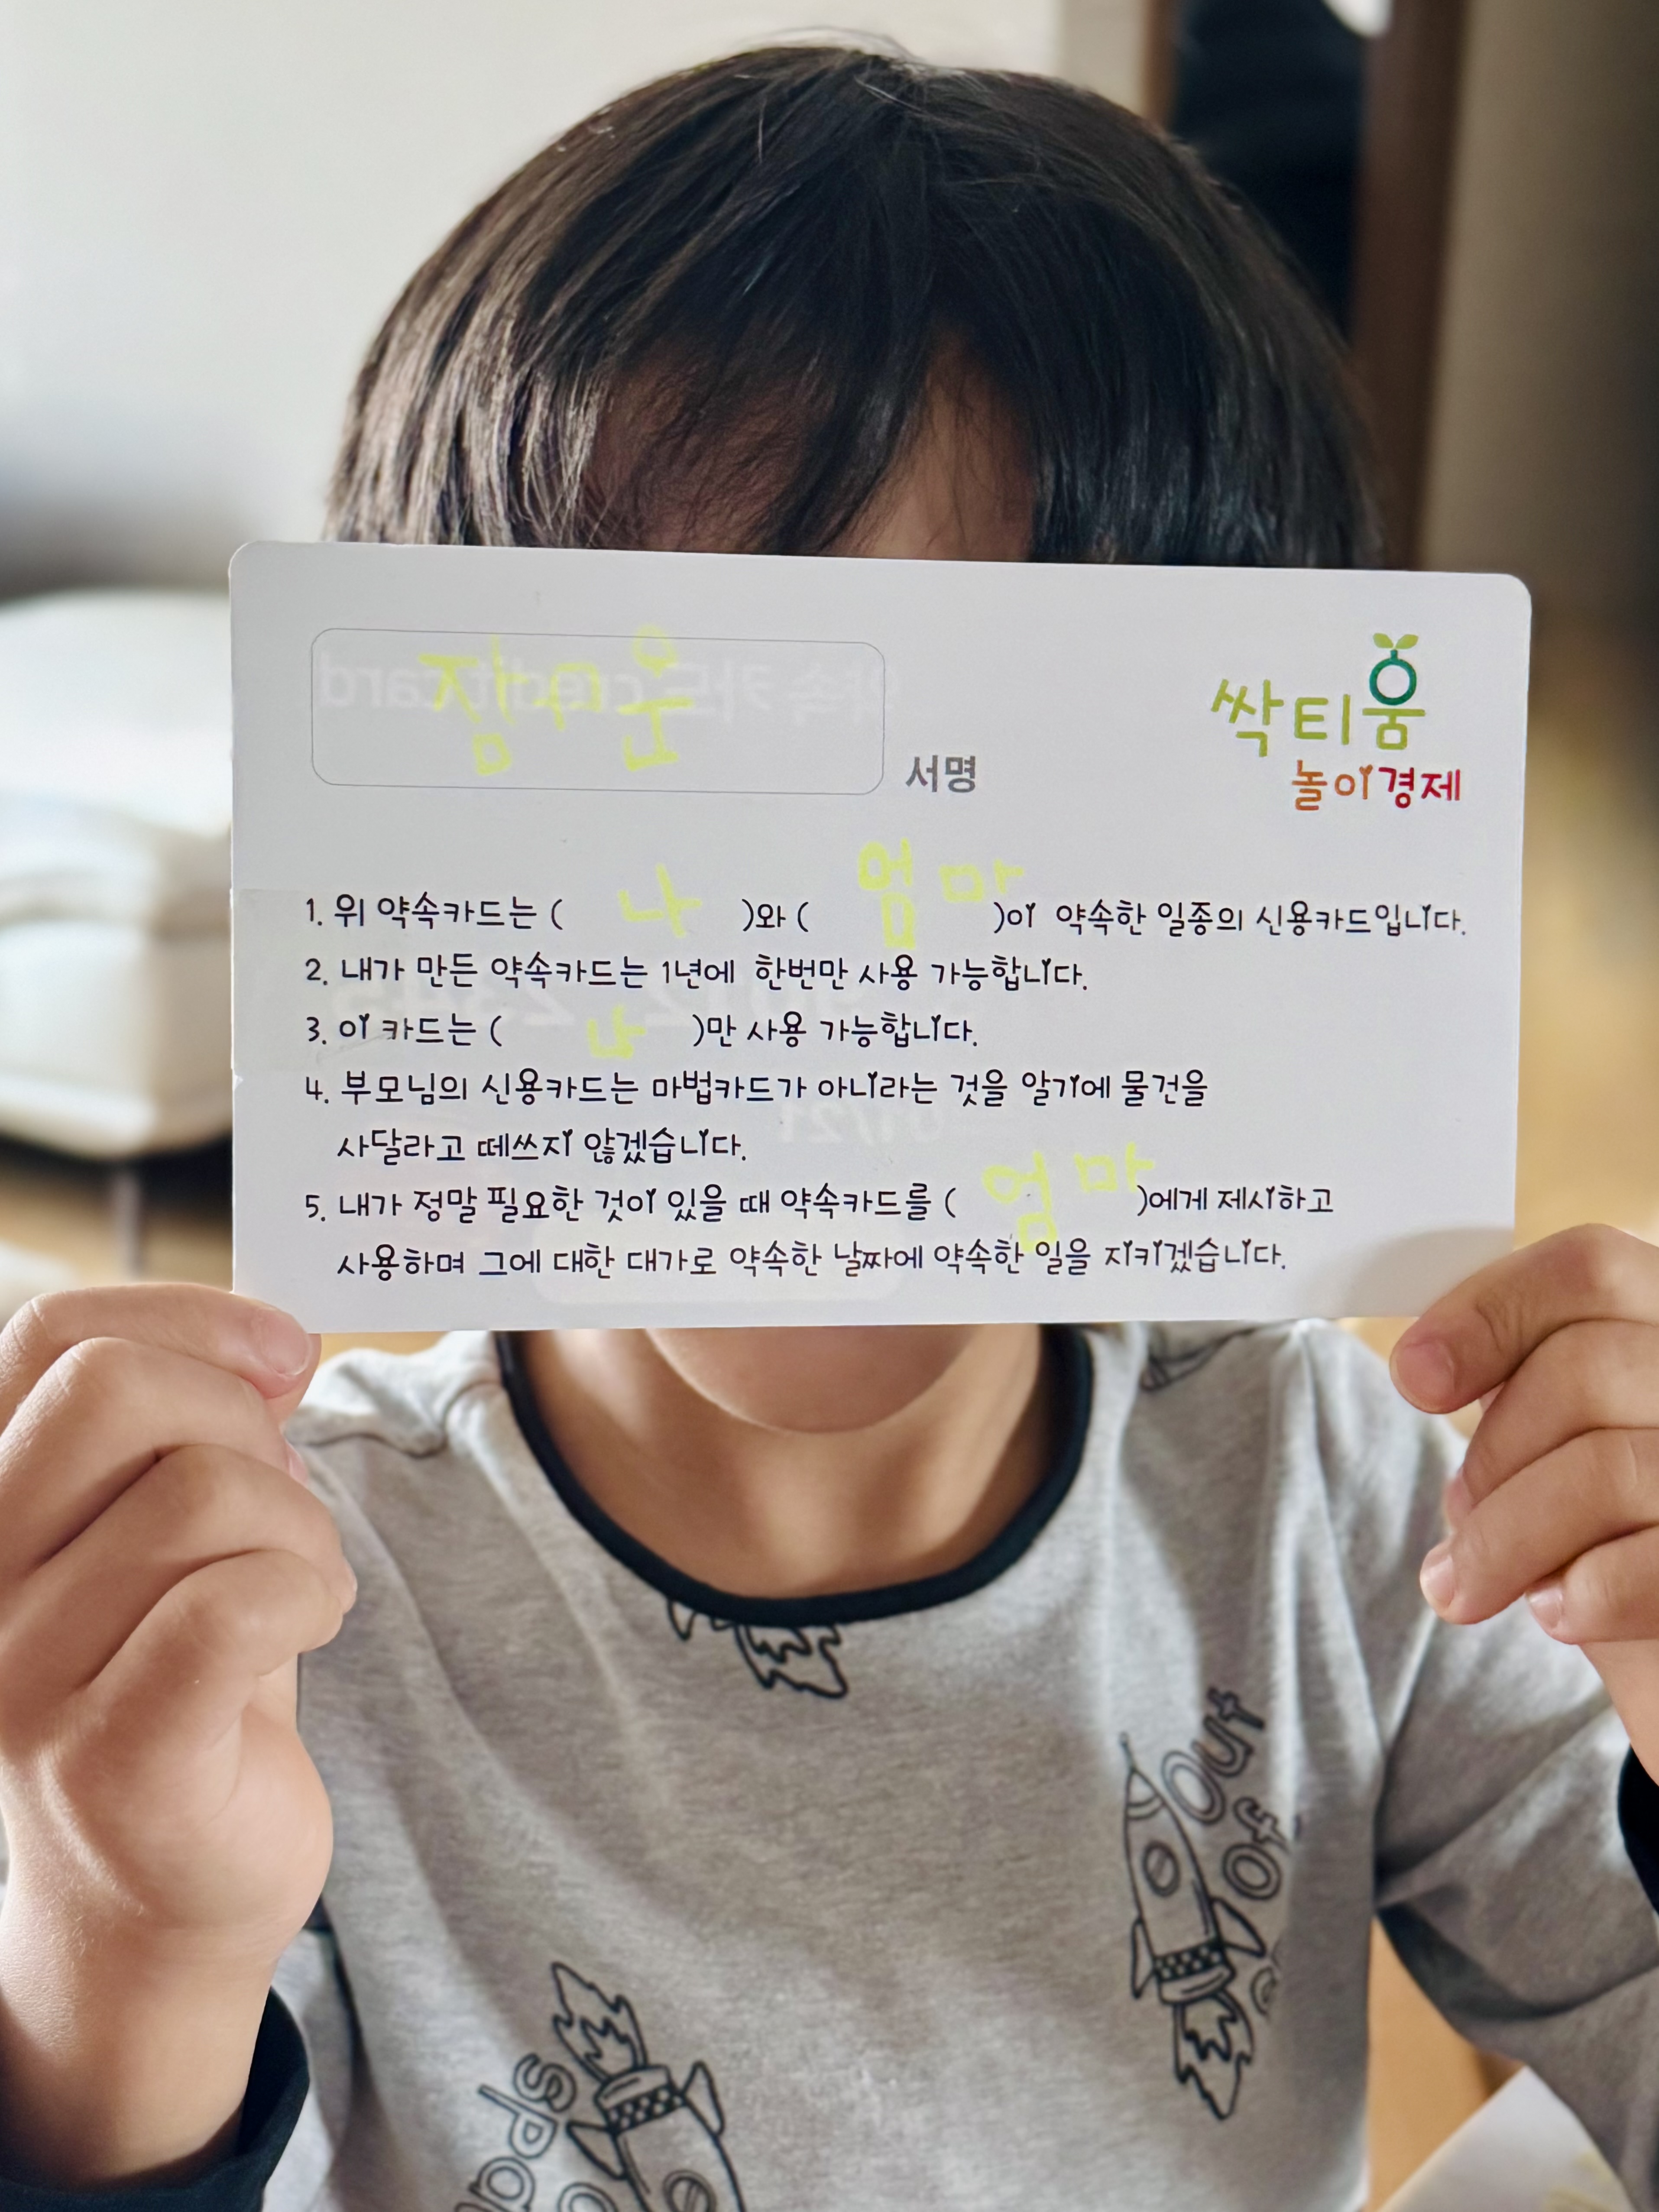 싹티움
놀이경제
서명
1. 위 약속카드는 ( 나 )와 ( 엄마 )이 약속한 일종의 신용카드입니다.
2. 내가 만든 약속카드는 1년에 한번만 사용 가능합니다.
3. 이 카드는 ( 나 )만 사용 가능합니다.
4. 부모님의 신용카드는 마법카드가 아니라는 것을 알기에 물건을
사달라고 떼쓰지 않겠습니다.
5. 내가 정말 필요한 것이 있을 때 약속카드를 ( 엄마 )에게 제시하고
사용하며 그에 대한 대가로 약속한 날짜에 약속한 일을 지키겠습니다.
out
of
spa